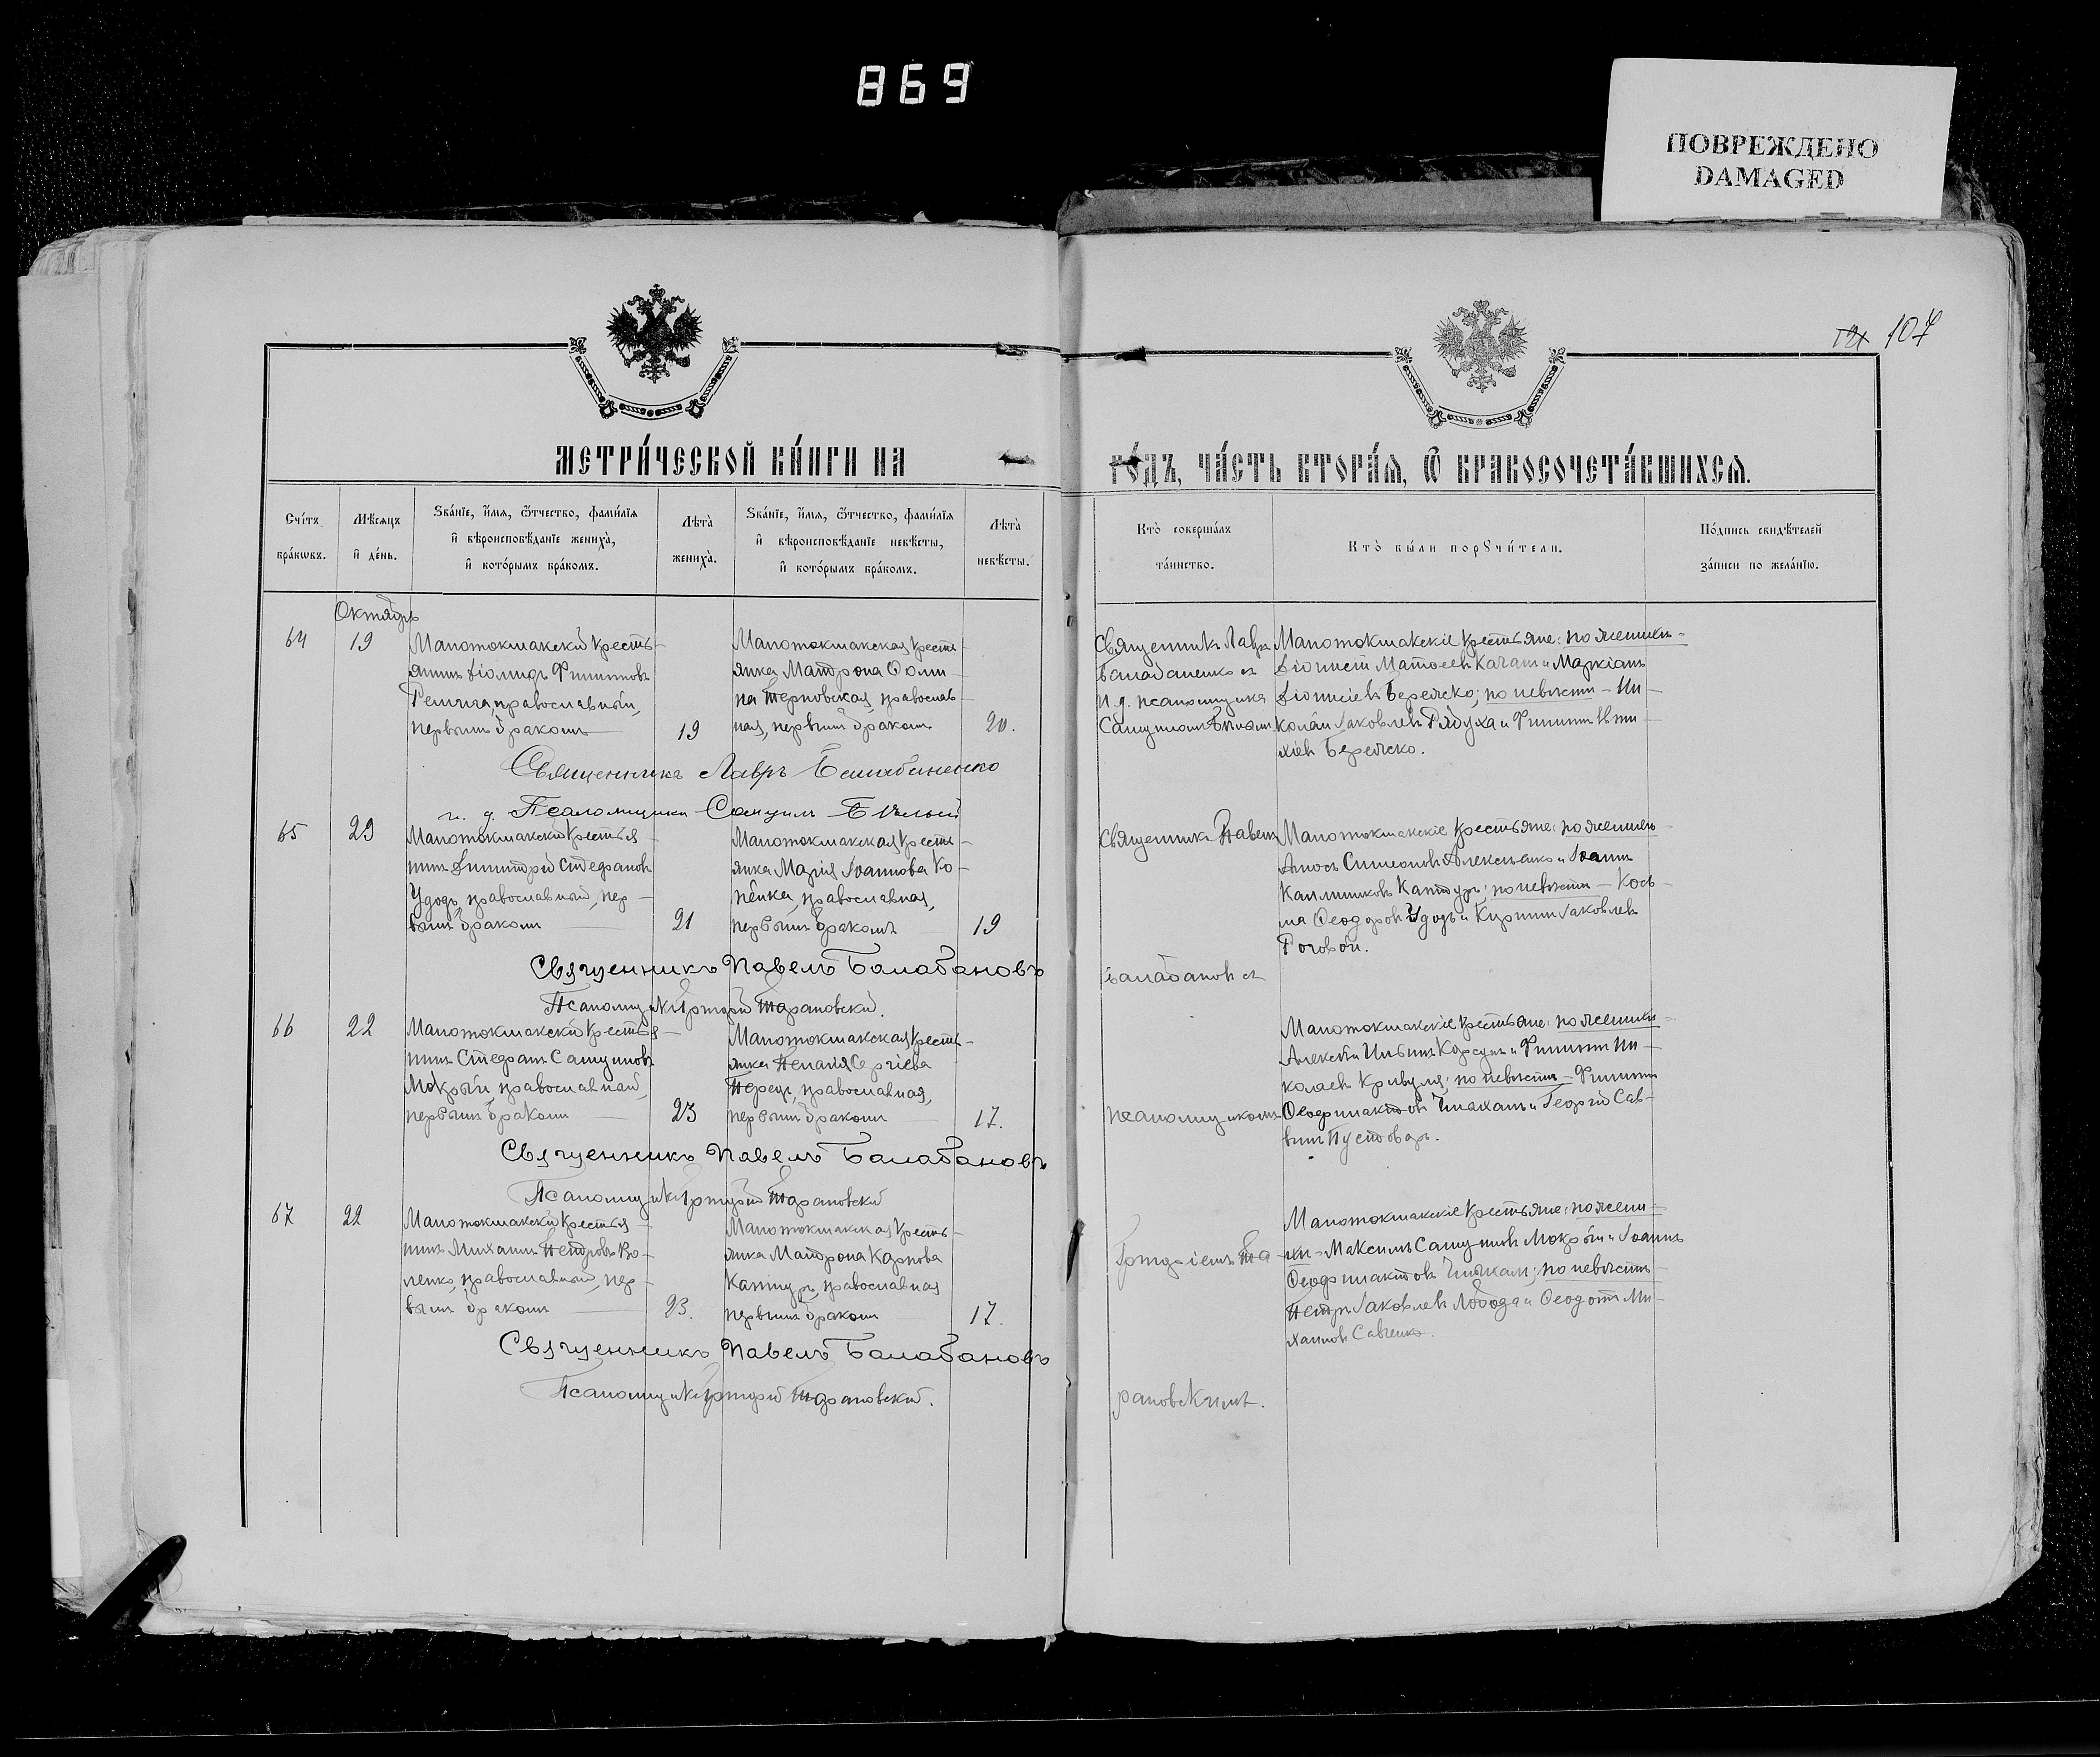 869
ПОВРЕЖДЕНО
DAMAGED
107
МЕТРИ́ЧЕСКОЙ КНИ́ГИ НА
ГО́ДЪ, ЧА́СТЬ ВТОРА́Ѧ, Ѿ БРАКОСОЧЕТА́ВШИХСѦ.
Сче́тъ бра́кѡвъ.
Мѣ́сѧцъ и҆ де́нь.
Ѕва́нїе, и҆́мѧ, ѻ҆́тчество, фами́лїѧ
и҆ вѣроисповѣ́данїе жениха̀,
и҆ кото́рымъ бра́комъ.
Лѣта̀ жениха̀.
Ѕва́нїе, и҆́мѧ, ѻ҆́тчество, фами́лїѧ
и҆ вѣроисповѣ́данїе невѣ́сты,
и҆ кото́рымъ бра́комъ.
Лѣта̀ невѣ́сты.
Кто̀ соверша́лъ та́инство.
Кто̀ бы́ли порꙋчи́тели.
По́дпись свидѣ́телей за́писи по жела́нїю.
Октябрь
64
19
Малотокмакскій кресть-
янинъ Діомидъ Филиповъ
православный,
первымъ бракомъ
19
Малотокмакская кресть-
янка Матрона Ѳоми-
на Терновская, православ-
ная, первымъ бракомъ
20.
Священникъ Лавръ
Балабаненко съ
и. д. псаломщика
Самуиломъ Бѣлымъ
Малотокмакскіе крестьяне: по женихѣ-
Діонисій Качан и Маркіанъ
Діонисіевъ Бережко; по невѣстѣ - Ни-
колай Іаковлевъ Рядуха и Филиппъ
Бережко.
Священникъ Лавръ Балабаненко
и. д. Псаломщика Самуилъ Бѣлый
65
29
Малотокмакскій крестья-
нинъ Димитрій Стефановъ
Удодъ, православный, пер-
вымъ бракомъ
21
Малотокмакская кресть-
янка Марія Іоаннова Ко-
пейка, православная,
первымъ бракомъ
19
Священникъ Павелъ
Малотокмакскіе крестьяне: по женихѣ
Амосъ Симеоновъ Алексѣенко и Іоаннъ
Каллиниковъ Кантуръ; по невѣстѣ - Кось-
ма Ѳеодоровъ Удодъ и Кириллъ Іаковлевъ
Роговой.
Священникъ Павелъ Балабановъ
Балабановъ съ
Псаломщикъ Григорій Тарановскій.
66
22
Малотокмакскій крестья-
нинъ Стефанъ Самуиловъ
Мокрый, православный,
первымъ бракомъ
23
Малотокмакская кресть-
янка Пелагія Сергіева
православная,
первымъ бракомъ
17.
псаломщикомъ
Малотокмакскіе крестьяне: по женихѣ
Алексѣй Ильинъ Корсунъ и Филиппъ Ни-
колаевъ Кривуля; по невѣстѣ - Филиппъ
Ѳеофилактовъ Чмыхалъ и Георгій Сав-
винъ Пустоваръ.
Священникъ Павелъ Балабановъ
Псаломщикъ Григорій Тарановскій
67
22
Малотокмакскій крестья-
нинъ Михаилъ Петровъ Во-
ленко, православный, пер-
вымъ бракомъ
23.
Малотокмакская кресть-
янка Матрона Карпова
Кантуръ, православная
первымъ бракомъ
17.
Григоріемъ Та-
Малотокмакскіе крестьяне: по жени-
хѣ - Максимъ Самуиловъ Мокрый и Іоаннъ
Ѳеофилактовъ Чмыхалъ; по невѣстѣ
Петръ Іаковлевъ Лобода и Ѳеодотъ Ми-
хаиловъ Савченко.
Священникъ Павелъ Балабановъ
Псаломщикъ Григорій Тарановскій.
рановскимъ.